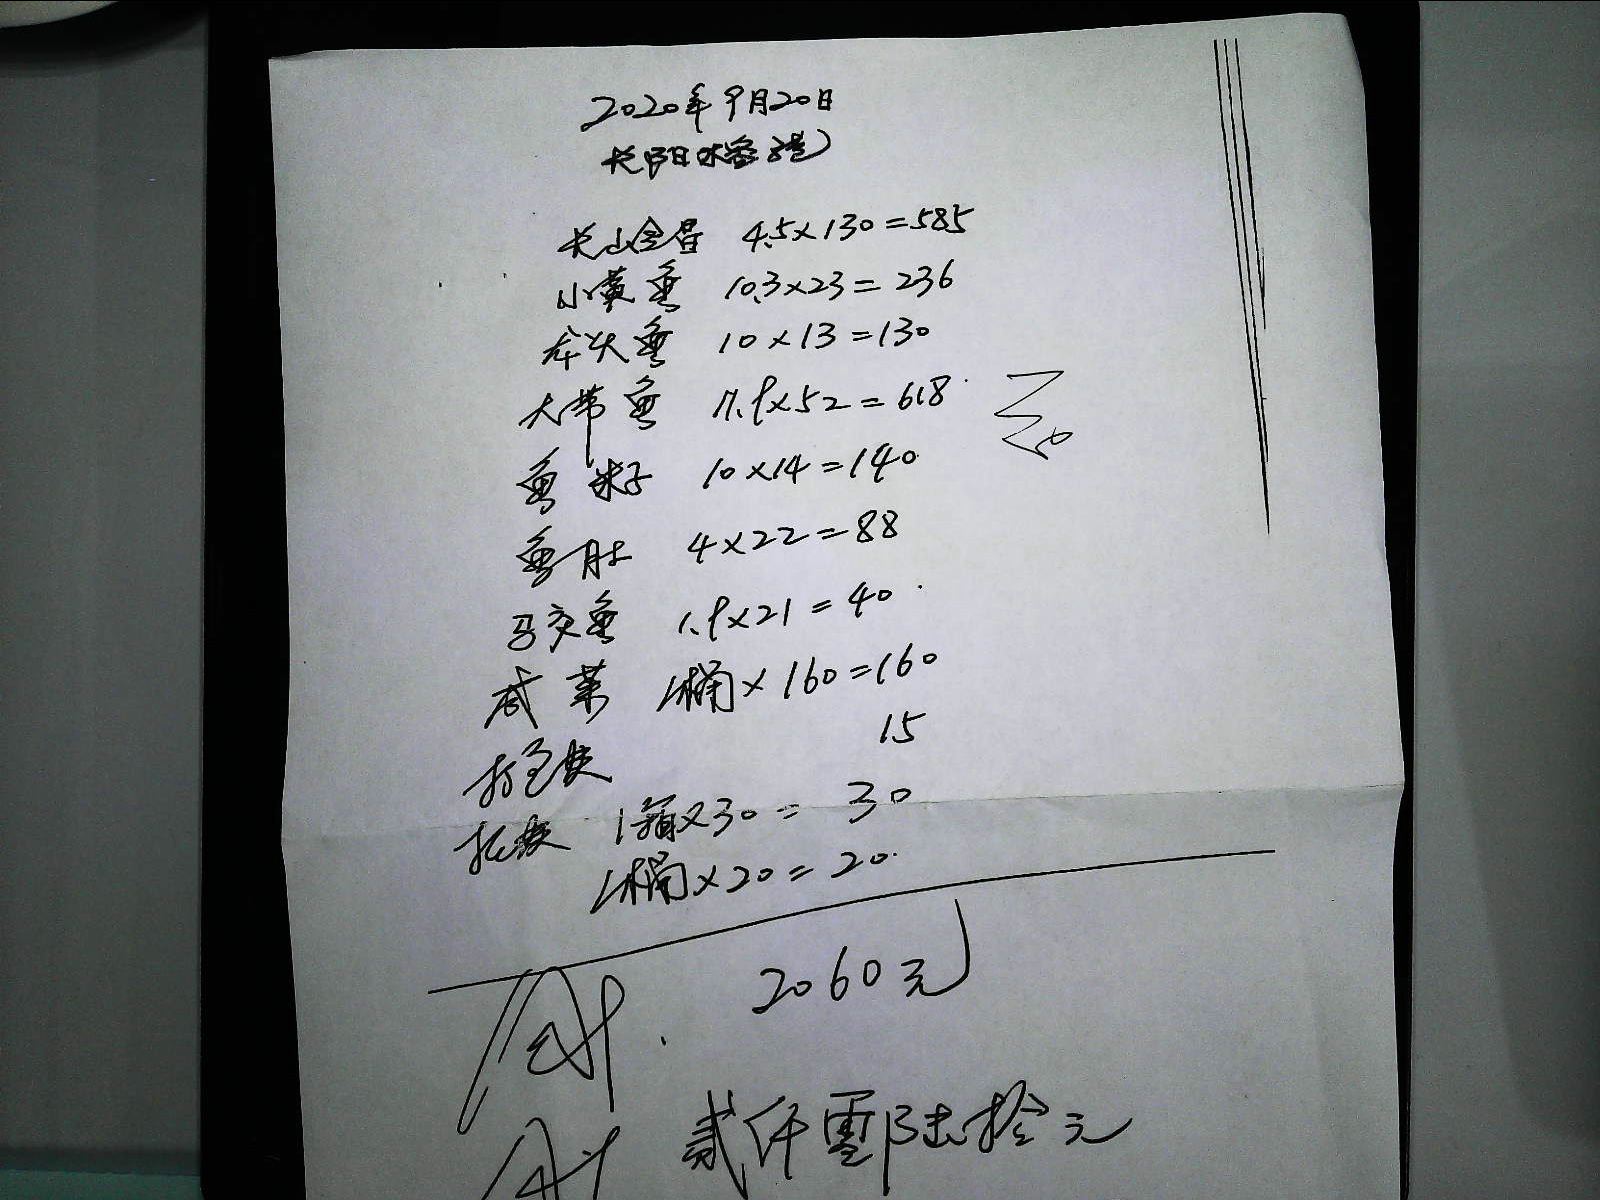 2020年9月20日
长阳水
长山全昌 4.5×130=585
小黄鱼 10.3×23=236
龙头鱼 10×13=130
大带鱼 11.9×52=618
鱼籽 10×14=140
鱼肚 4×22=88
马交鱼 1.9×21=40
咸菜 1桶×160=160
打包费 15
托费 1箱×30=30
1桶×20=20
2060元
贰仟零陆拾元